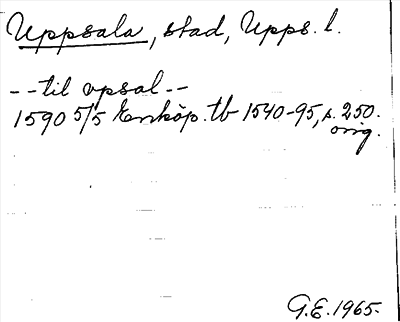 Uppsala, stad, Upps. l.
--til vpsal--
1590 5/5 Enköp. tb 1540-95, s. 250.
orig.
G.E. 1965.